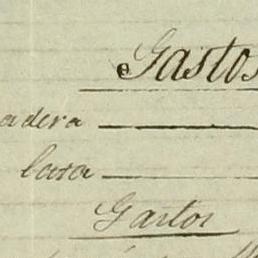 Gastos
adera
casa
Gastos